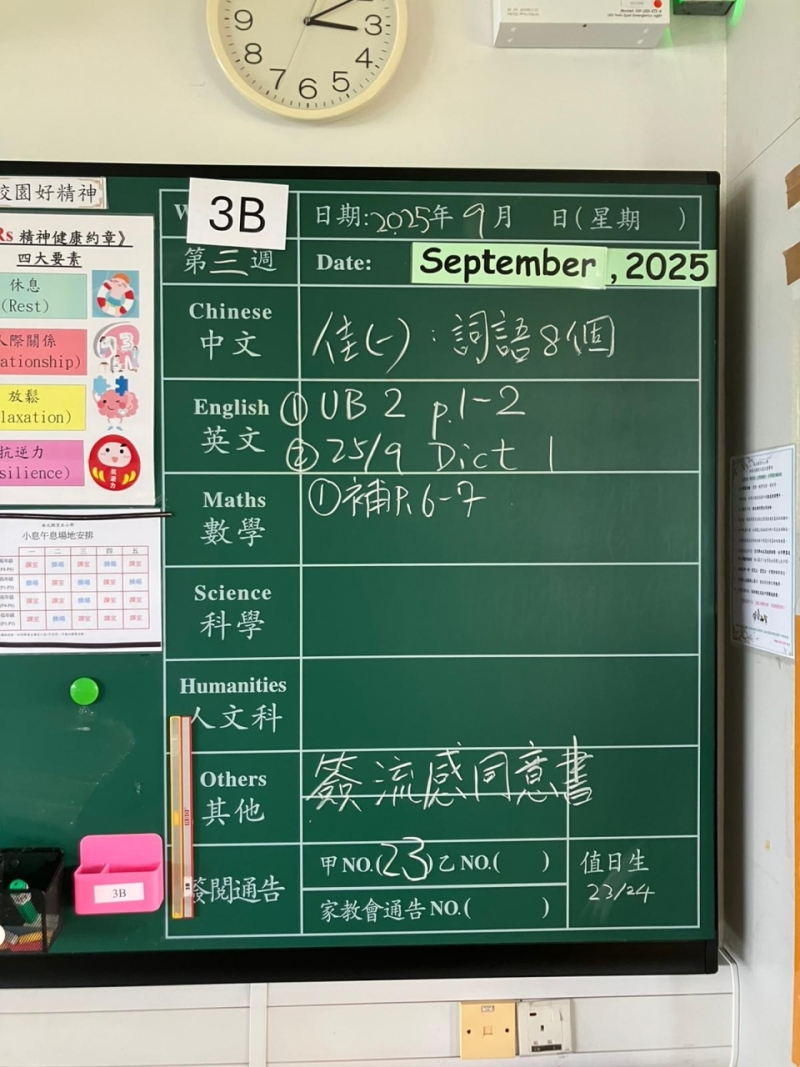 9 8 7 6 5 4 3
校園好精神
Rs 精神健康約章》
四大要素
休息
(Rest)
人際關係
ationship)
放鬆
laxation)
抗逆力
silience)
小息午息場地安排
一 二 三 四 五
3B
日期:2025年 9月 日(星期 )
第三週
Date: September , 2025
Chinese
中文
佳(一):詞語8個
English
英文
① UB 2 p.1-2
② 25/9 Dict 1
Maths
數學
①補P.6-7
Science
科學
Humanities
人文科
Others
其他
簽流感同意書
簽閱通告
甲NO.(23)乙NO.( )
家教會通告NO.( )
值日生
23/24
3B